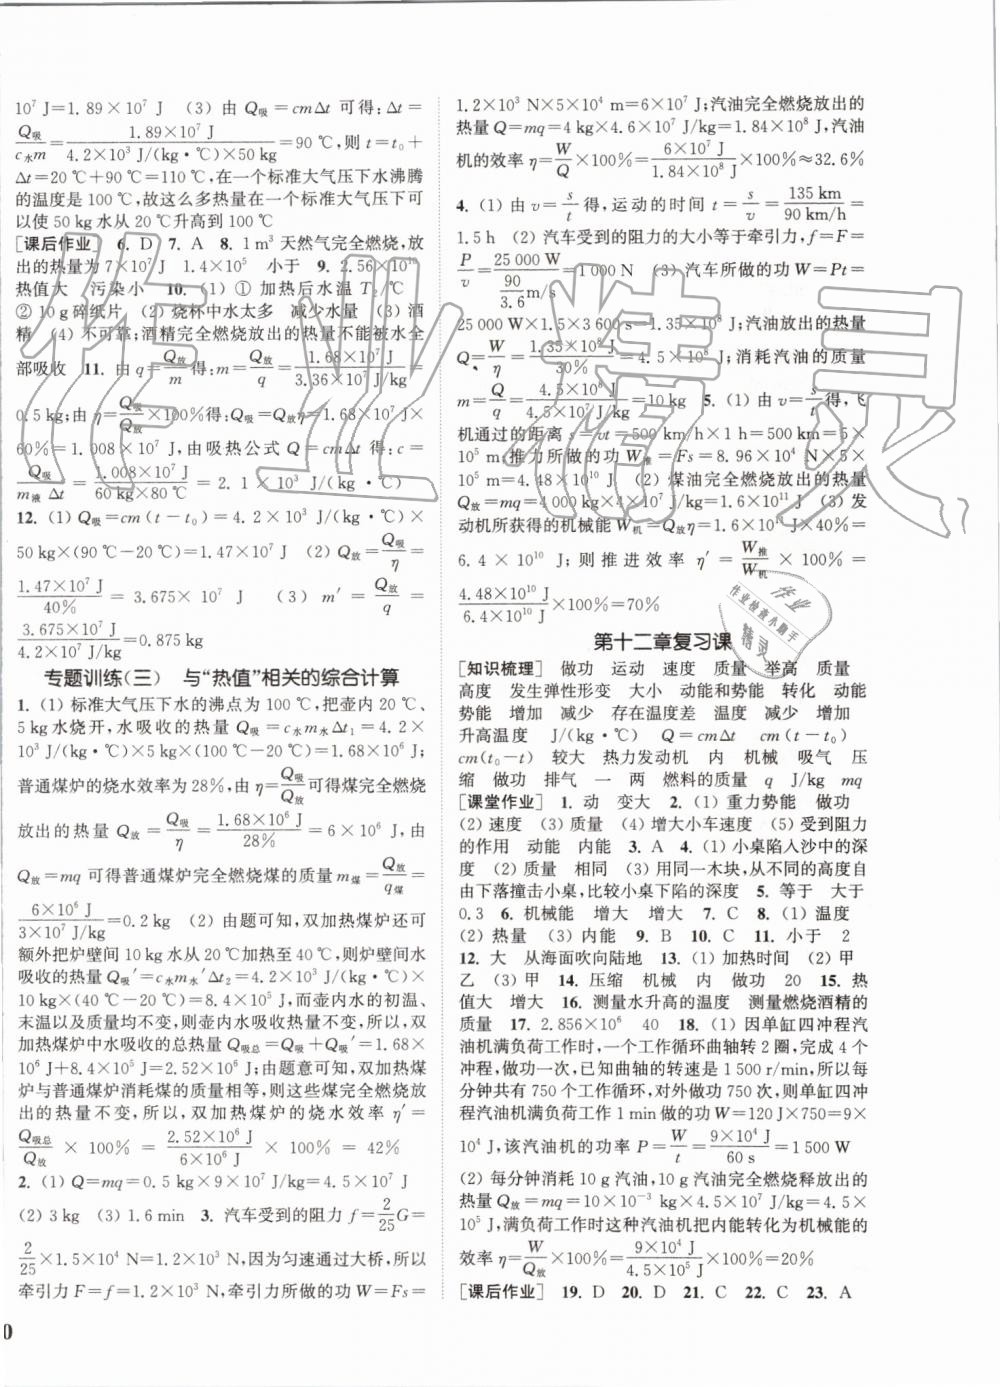 10⁷ J=1.89×10⁷ J　(3) 由 Q吸=cmΔt 可得:Δt=
Q吸/(c水m)=1.89×10⁷ J/(4.2×10³ J/(kg·℃)×50 kg)=90 ℃,则 t=t₀+
Δt=20 ℃+90 ℃=110 ℃,在一个标准大气压下水沸腾
的温度是 100 ℃,故这么多热量在一个标准大气压下可
以使 50 kg 水从 20 ℃升高到 100 ℃
[课后作业]　6. D　7. A　8. 1 m³ 天然气完全燃烧,放
出的热量为 7×10⁷ J　1.4×10⁵　小于　9. 2.56×10¹¹
热值大　污染小　10. (1) ① 加热后水温 T₂ ℃
② 10 g 碎纸片　(2) 烧杯中水太多　减少水量　(3) 酒
精　(4) 不可靠;酒精完全燃烧放出的热量不能被水全
部吸收　11. 由 q=Q放/m 得:m=Q放/q=1.68×10⁷ J/(3.36×10⁷ J/kg)=
0.5 kg;由 η=Q吸/Q放×100%得:Q吸=Q放η=1.68×10⁷ J×
60%=1.008×10⁷ J,由吸热公式 Q=cmΔt 得:c=
Q吸/(m液Δt)=1.008×10⁷ J/(60 kg×80 ℃)=2.1×10³ J/(kg·℃)
12. (1) Q吸=cm(t-t₀)=4.2×10³ J/(kg·℃)×
50 kg×(90 ℃-20 ℃)=1.47×10⁷ J　(2) Q放=Q吸/η=
1.47×10⁷ J/40%=3.675×10⁷ J　(3) m′=Q放/q=
3.675×10⁷ J/4.2×10⁷ J=0.875 kg
专题训练(三)　与“热值”相关的综合计算
1. (1) 标准大气压下水的沸点为 100 ℃,把壶内 20 ℃、
5 kg 水烧开,水吸收的热量 Q吸=c水m水Δt₁=4.2×
10³ J/(kg·℃)×5 kg×(100 ℃-20 ℃)=1.68×10⁶ J;
普通煤炉的烧水效率为 28%,由 η=Q吸/Q放可得完全燃烧
放出的热量 Q放=Q吸/η=1.68×10⁶ J/28%=6×10⁶ J,由
Q放=mq 可得普通煤炉完全燃烧煤的质量 m煤=Q放/q煤=
6×10⁶ J/3×10⁷ J=0.2 kg　(2) 由题可知,双加热煤炉还可
额外把炉壁间 10 kg 水从 20 ℃加热至 40 ℃,则炉壁间水
吸收的热量 Q吸′=c水m水′Δt₂=4.2×10³ J/(kg·℃)×
10 kg×(40 ℃-20 ℃)=8.4×10⁵ J,而壶内水的初温、
末温以及质量均不变,则壶内水吸收热量不变,所以,双
加热煤炉中水吸收的总热量 Q吸总=Q吸+Q吸′=1.68×
10⁶ J+8.4×10⁵ J=2.52×10⁶ J;由题意可知,双加热煤
炉与普通煤炉消耗煤的质量相等,则这些煤完全燃烧放
出的热量不变,所以,双加热煤炉的烧水效率 η′=
Q吸总/Q放×100%=2.52×10⁶ J/6×10⁶ J×100%=42%
2. (1) Q=mq=0.5 kg×9×10⁷ J/kg=4.5×10⁷ J
(2) 3 kg　(3) 1.6 min　3. 汽车受到的阻力 f=2/25G=
2/25×1.5×10⁴ N=1.2×10³ N,因为匀速通过大桥,所以
牵引力 F=f=1.2×10³ N,牵引力所做的功 W=Fs=
1.2×10³ N×5×10⁴ m=6×10⁷ J;汽油完全燃烧放出的
热量 Q=mq=4 kg×4.6×10⁷ J/kg=1.84×10⁸ J,汽油
机的效率 η=W/Q×100%=6×10⁷ J/1.84×10⁸ J×100%≈32.6%
4. (1) 由 v=s/t得,运动的时间 t=s/v=135 km/90 km/h=
1.5 h　(2) 汽车受到的阻力的大小等于牵引力,f=F=
P/v=25 000 W/(90/3.6 m/s)=1 000 N　(3) 汽车所做的功 W=Pt=
25 000 W×1.5×3 600 s=1.35×10⁸ J;汽油放出的热量
Q=W/η=1.35×10⁸ J/30%=4.5×10⁸ J;消耗汽油的质量
m=Q/q=4.5×10⁸ J/4.5×10⁷ J/kg=10 kg　5. (1) 由 v=s/t得,飞
机通过的距离 s=vt=500 km/h×1 h=500 km=5×
10⁵ m;推力所做的功 W推=Fs=8.96×10⁴ N×5×
10⁵ m=4.48×10¹⁰ J　(2) 煤油完全燃烧放出的热量
Q放=mq=4 000 kg×4×10⁷ J/kg=1.6×10¹¹ J　(3) 发
动机所获得的机械能 W机=Q放η=1.6×10¹¹ J×40%=
6.4×10¹⁰ J;则推进效率 η′=W推/W机×100%=
4.48×10¹⁰ J/6.4×10¹⁰ J×100%=70%
第十二章复习课
[知识梳理]　做功　运动　速度　质量　举高　质量
高度　发生弹性形变　大小　动能和势能　转化　动能
势能　增加　减少　存在温度差　温度　减少　增加
升高温度　J/(kg·℃)　Q=cmΔt　cm(t-t₀)
cm(t₀-t)　较大　热力发动机　内　机械　吸气　压
缩　做功　排气　一　两　燃料的质量　q　J/kg　mq
[课堂作业]　1. 动　变大　2. (1) 重力势能　做功
(2) 速度　(3) 质量　(4) 增大小车速度　(5) 受到阻力
的作用　动能　内能　3. A　4. (1) 小桌陷入沙中的深
度　(2) 质量　相同　(3) 用同一木块,从不同的高度自
由下落撞击小桌,比较小桌下陷的深度　5. 等于　大于
0.3　6. 机械能　增大　增大　7. C　8. (1) 温度
(2) 热量　(3) 内能　9. B　10. C　11. 小于　2
12. 大　从海面吹向陆地　13. (1) 加热时间　(2) 甲
乙　(3) 甲　14. 压缩　机械　内　做功　20　15. 热
值大　增大　16. 测量水升高的温度　测量燃烧酒精的
质量　17. 2.856×10⁶　40　18. (1) 因单缸四冲程汽
油机满负荷工作时,一个工作循环曲轴转 2 圈,完成 4 个
冲程,做功一次,已知曲轴的转速是 1 500 r/min,所以每
分钟共有 750 个工作循环,对外做功 750 次,则单缸四冲
程汽油机满负荷工作 1 min 做的功 W=120 J×750=9×
10⁴ J,该汽油机的功率 P=W/t=9×10⁴ J/60 s=1 500 W
(2) 每分钟消耗 10 g 汽油,10 g 汽油完全燃烧释放出的
热量 Q放=mq=10×10⁻³ kg×4.5×10⁷ J/kg=4.5×
10⁵ J,满负荷工作时这种汽油机把内能转化为机械能的
效率 η=W/Q放×100%=9×10⁴ J/4.5×10⁵ J×100%=20%
[课后作业]　19. D　20. D　21. C　22. C　23. A
0
作业精灵
作业
作业检查小助手
精灵